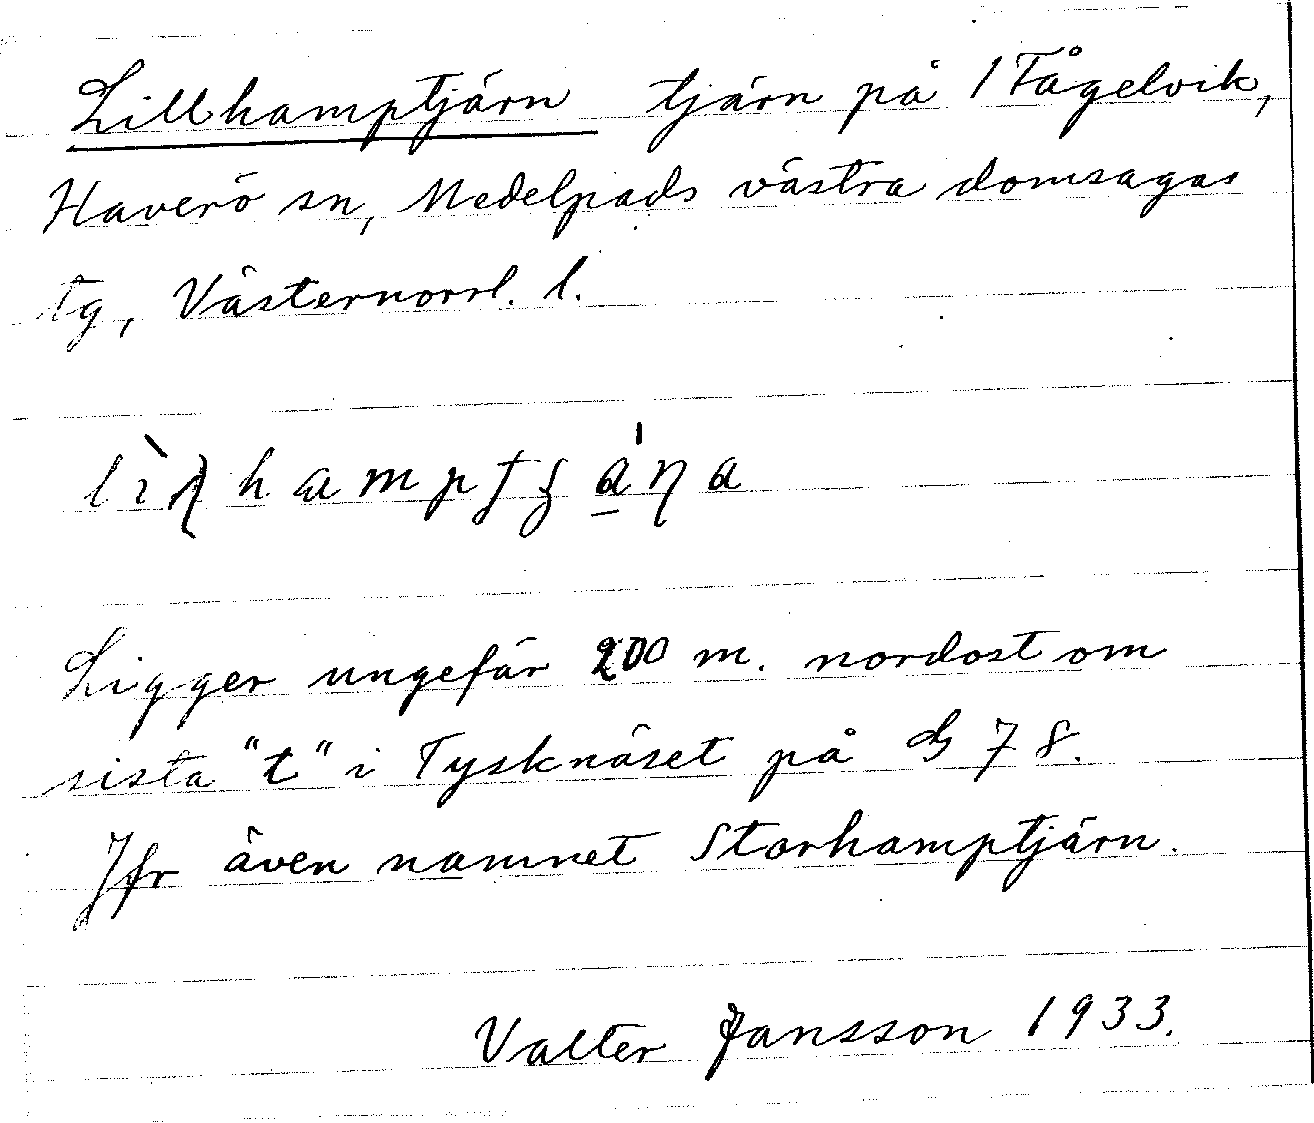 Lillhamptjärn tjärn på 1 Fågelvik,
Haverö sn, Medelpads västra domsagas
tg, Västernorrl. l.
Ligger ungefär 200 m. nordost om
sista "t" i Tysknäset på G 78.
Jfr även namnet Storhamptjärn.
Valter Jansson 1933.